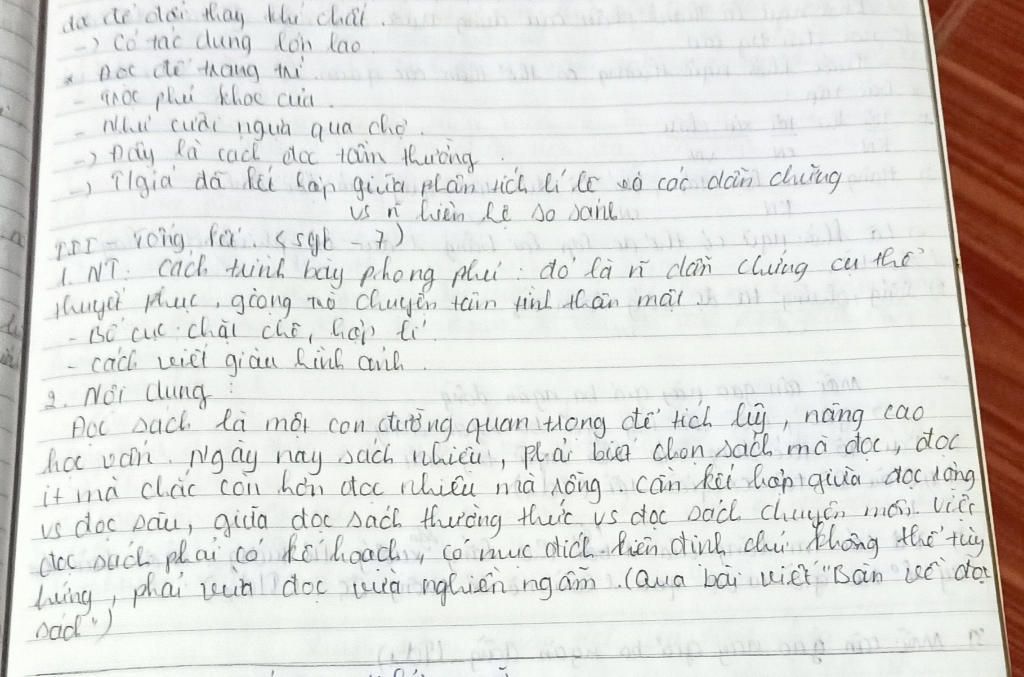 đa để đổi thay khí chất.
-> Có tác dụng lớn lao
* Đọc để trang trí.
- trọc phú khoe của.
- Như cưỡi ngựa qua chợ.
-> Đây là cách đọc tầm thường.
-> Tgiả đã kết hợp giữa phân tích lí lẽ và các dẫn chứng
vs n~ liên hệ so sánh
III - Tổng kết. (sgk - 7)
1. NT: cách trình bày phong phú: đó là n~ dẫn chứng cụ thể
thuyết phục, giọng trò chuyện tâm tình thân mật.
- Bố cục: chặt chẽ, hợp lí.
- cách viết giàu hình ảnh.
2. Nội dung:
Đọc sách là một con đường quan trọng để tích lũy, nâng cao
học vấn. Ngày nay sách nhiều, phải biết chọn sách mà đọc, đọc
ít mà chắc còn hơn đọc nhiều mà rỗng. cần kết hợp giữa đọc rộng
vs đọc sâu, giữa đọc sách thường thức vs đọc sách chuyên môn. Việc
đọc sách phải có kế hoạch, có mục đích kiên định chứ không thể tùy
hứng, phải vừa đọc vừa nghiền ngẫm. (Qua bài viết "Bàn về đọc
sách")